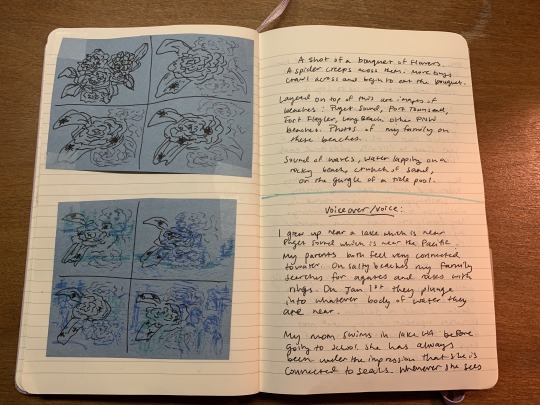 A shot of a bouquet of flowers.
A spider creeps across them. More bugs
crawl across and begin to eat the bouquet.
Layered on top of this are images of
beaches: Puget Sound, Port Townsend,
Fort Flagler, Long Beach other PNW
beaches. Photos of my family on
these beaches.
Sound of waves, water lapping on a
rocky beach, crunch of sand,
or the gurgle of a tide pool.
Voiceover/voice:
I grew up near a lake which is near
Puget Sound which is near the Pacific.
My parents both feel very connected
to water. On salty beaches my family
searches for agates and rocks with
rings. On Jan 1st they plunge
into whatever body of water they
are near.
My mom swims in lake WA before
going to school. She has always
been under the impression that she is
connected to seals. Whenever she sees